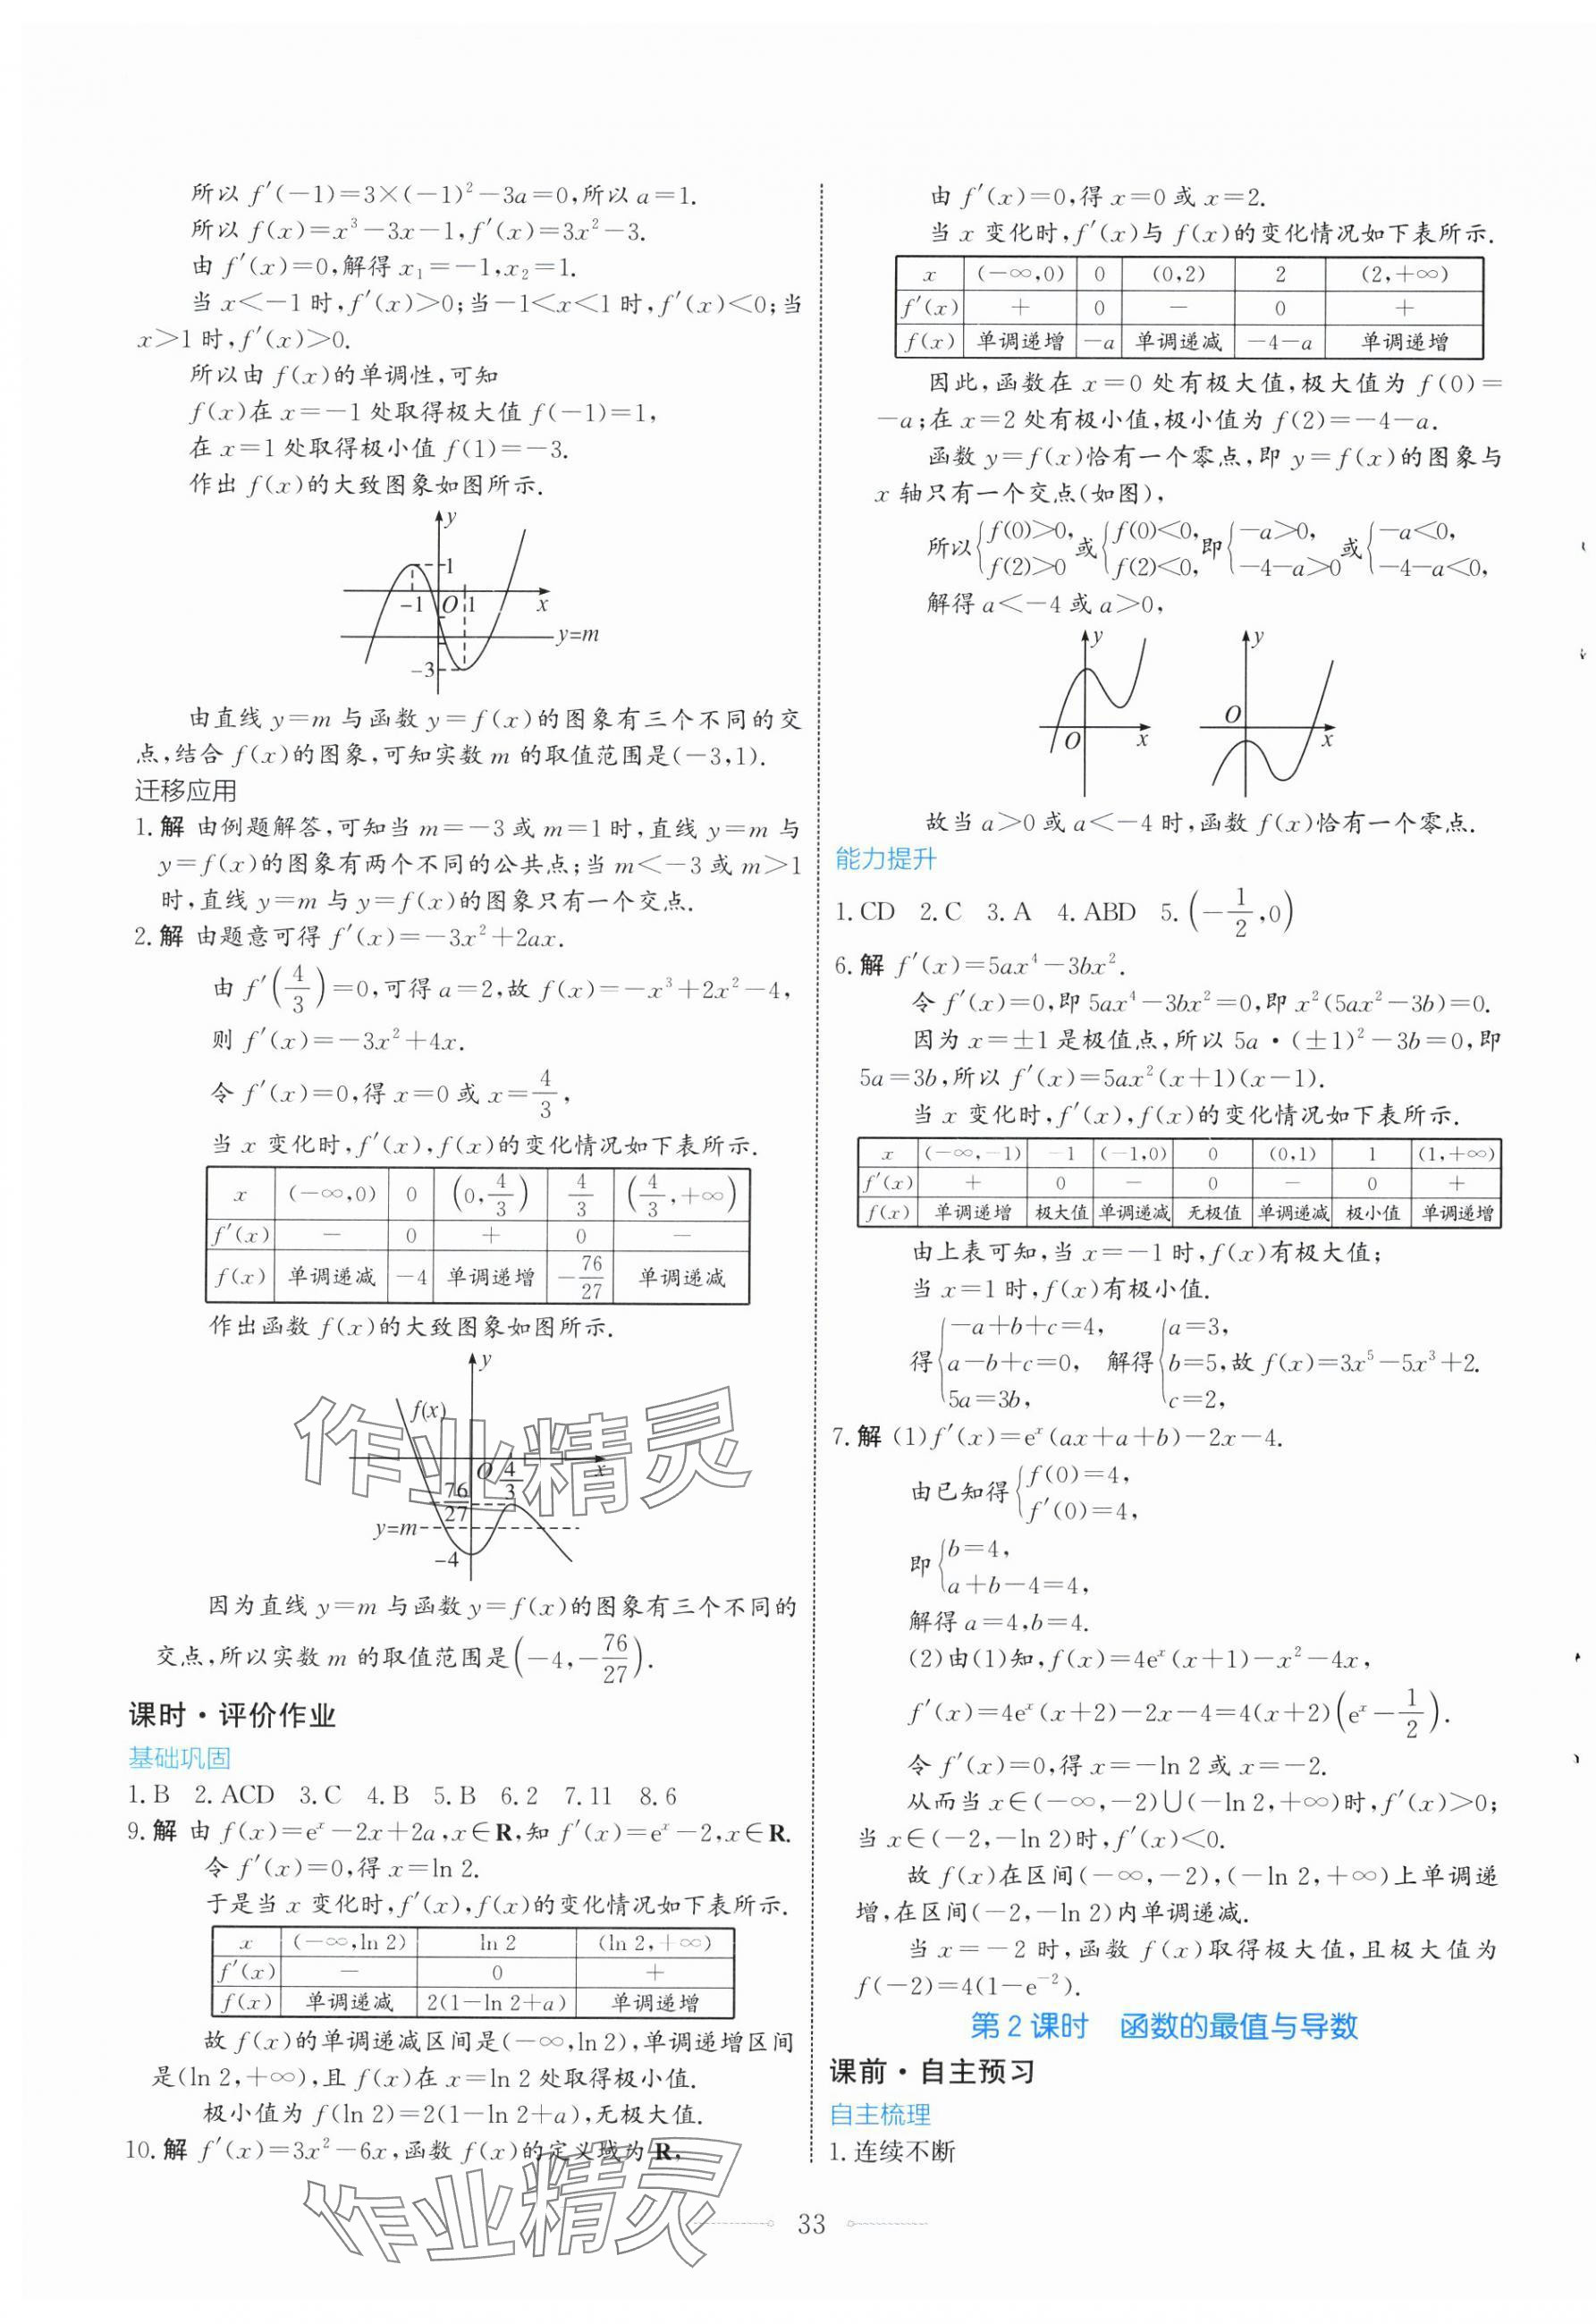 所以 f′(−1)=3×(−1)²−3a=0,所以 a=1.
所以 f(x)=x³−3x−1,f′(x)=3x²−3.
由 f′(x)=0,解得 x₁=−1,x₂=1.
当 x<−1 时,f′(x)>0;当−1<x<1 时,f′(x)<0;当
x>1 时,f′(x)>0.
所以由 f(x)的单调性,可知
f(x)在 x=−1 处取得极大值 f(−1)=1,
在 x=1 处取得极小值 f(1)=−3.
作出 f(x)的大致图象如图所示.
y
1
−1 O 1 x
y=m
−3
由直线 y=m 与函数 y=f(x)的图象有三个不同的交
点,结合 f(x)的图象,可知实数 m 的取值范围是(−3,1).
迁移应用
1.解 由例题解答,可知当 m=−3 或 m=1 时,直线 y=m 与
y=f(x)的图象有两个不同的公共点;当 m<−3 或 m>1
时,直线 y=m 与 y=f(x)的图象只有一个交点.
2.解 由题意可得 f′(x)=−3x²+2ax.
由 f′(4/3)=0,可得 a=2,故 f(x)=−x³+2x²−4,
则 f′(x)=−3x²+4x.
令 f′(x)=0,得 x=0 或 x=4/3,
当 x 变化时,f′(x),f(x)的变化情况如下表所示.
x (−∞,0) 0 (0,4/3) 4/3 (4/3,+∞)
f′(x) − 0 + 0 −
f(x) 单调递减 −4 单调递增 −76/27 单调递减
作出函数 f(x)的大致图象如图所示.
y
f(x)
O 4/3 x
−76/27
y=m
−4
因为直线 y=m 与函数 y=f(x)的图象有三个不同的
交点,所以实数 m 的取值范围是(−4,−76/27).
课时·评价作业
基础巩固
1.B 2.ACD 3.C 4.B 5.B 6.2 7.11 8.6
9.解 由 f(x)=eˣ−2x+2a,x∈R,知 f′(x)=eˣ−2,x∈R.
令 f′(x)=0,得 x=ln 2.
于是当 x 变化时,f′(x),f(x)的变化情况如下表所示.
x (−∞,ln 2) ln 2 (ln 2,+∞)
f′(x) − 0 +
f(x) 单调递减 2(1−ln 2+a) 单调递增
故 f(x)的单调递减区间是(−∞,ln 2),单调递增区间
是(ln 2,+∞),且 f(x)在 x=ln 2 处取得极小值.
极小值为 f(ln 2)=2(1−ln 2+a),无极大值.
10.解 f′(x)=3x²−6x,函数 f(x)的定义域为 R,
由 f′(x)=0,得 x=0 或 x=2.
当 x 变化时,f′(x)与 f(x)的变化情况如下表所示.
x (−∞,0) 0 (0,2) 2 (2,+∞)
f′(x) + 0 − 0 +
f(x) 单调递增 −a 单调递减 −4−a 单调递增
因此,函数在 x=0 处有极大值,极大值为 f(0)=
−a;在 x=2 处有极小值,极小值为 f(2)=−4−a.
函数 y=f(x)恰有一个零点,即 y=f(x)的图象与
x 轴只有一个交点(如图),
所以{f(0)>0, f(2)>0 或{f(0)<0, f(2)<0, 即{−a>0, −4−a>0 或{−a<0, −4−a<0,
解得 a<−4 或 a>0,
y
O x
y
O x
故当 a>0 或 a<−4 时,函数 f(x)恰有一个零点.
能力提升
1.CD 2.C 3.A 4.ABD 5.(−1/2,0)
6.解 f′(x)=5ax⁴−3bx².
令 f′(x)=0,即 5ax⁴−3bx²=0,即 x²(5ax²−3b)=0.
因为 x=±1 是极值点,所以 5a·(±1)²−3b=0,即
5a=3b,所以 f′(x)=5ax²(x+1)(x−1).
当 x 变化时,f′(x),f(x)的变化情况如下表所示.
x (−∞,−1) −1 (−1,0) 0 (0,1) 1 (1,+∞)
f′(x) + 0 − 0 − 0 +
f(x) 单调递增 极大值 单调递减 无极值 单调递减 极小值 单调递增
由上表可知,当 x=−1 时,f(x)有极大值;
当 x=1 时,f(x)有极小值.
得{−a+b+c=4, a−b+c=0, 5a=3b, 解得{a=3, b=5, c=2, 故 f(x)=3x⁵−5x³+2.
7.解 (1)f′(x)=eˣ(ax+a+b)−2x−4.
由已知得{f(0)=4, f′(0)=4,
即{b=4, a+b−4=4,
解得 a=4,b=4.
(2)由(1)知,f(x)=4eˣ(x+1)−x²−4x,
f′(x)=4eˣ(x+2)−2x−4=4(x+2)(eˣ−1/2).
令 f′(x)=0,得 x=−ln 2 或 x=−2.
从而当 x∈(−∞,−2)∪(−ln 2,+∞)时,f′(x)>0;
当 x∈(−2,−ln 2)时,f′(x)<0.
故 f(x)在区间(−∞,−2),(−ln 2,+∞)上单调递
增,在区间(−2,−ln 2)内单调递减.
当 x=−2 时,函数 f(x)取得极大值,且极大值为
f(−2)=4(1−e⁻²).
第 2 课时 函数的最值与导数
课前·自主预习
自主梳理
1.连续不断
33
作业精灵
作业精灵